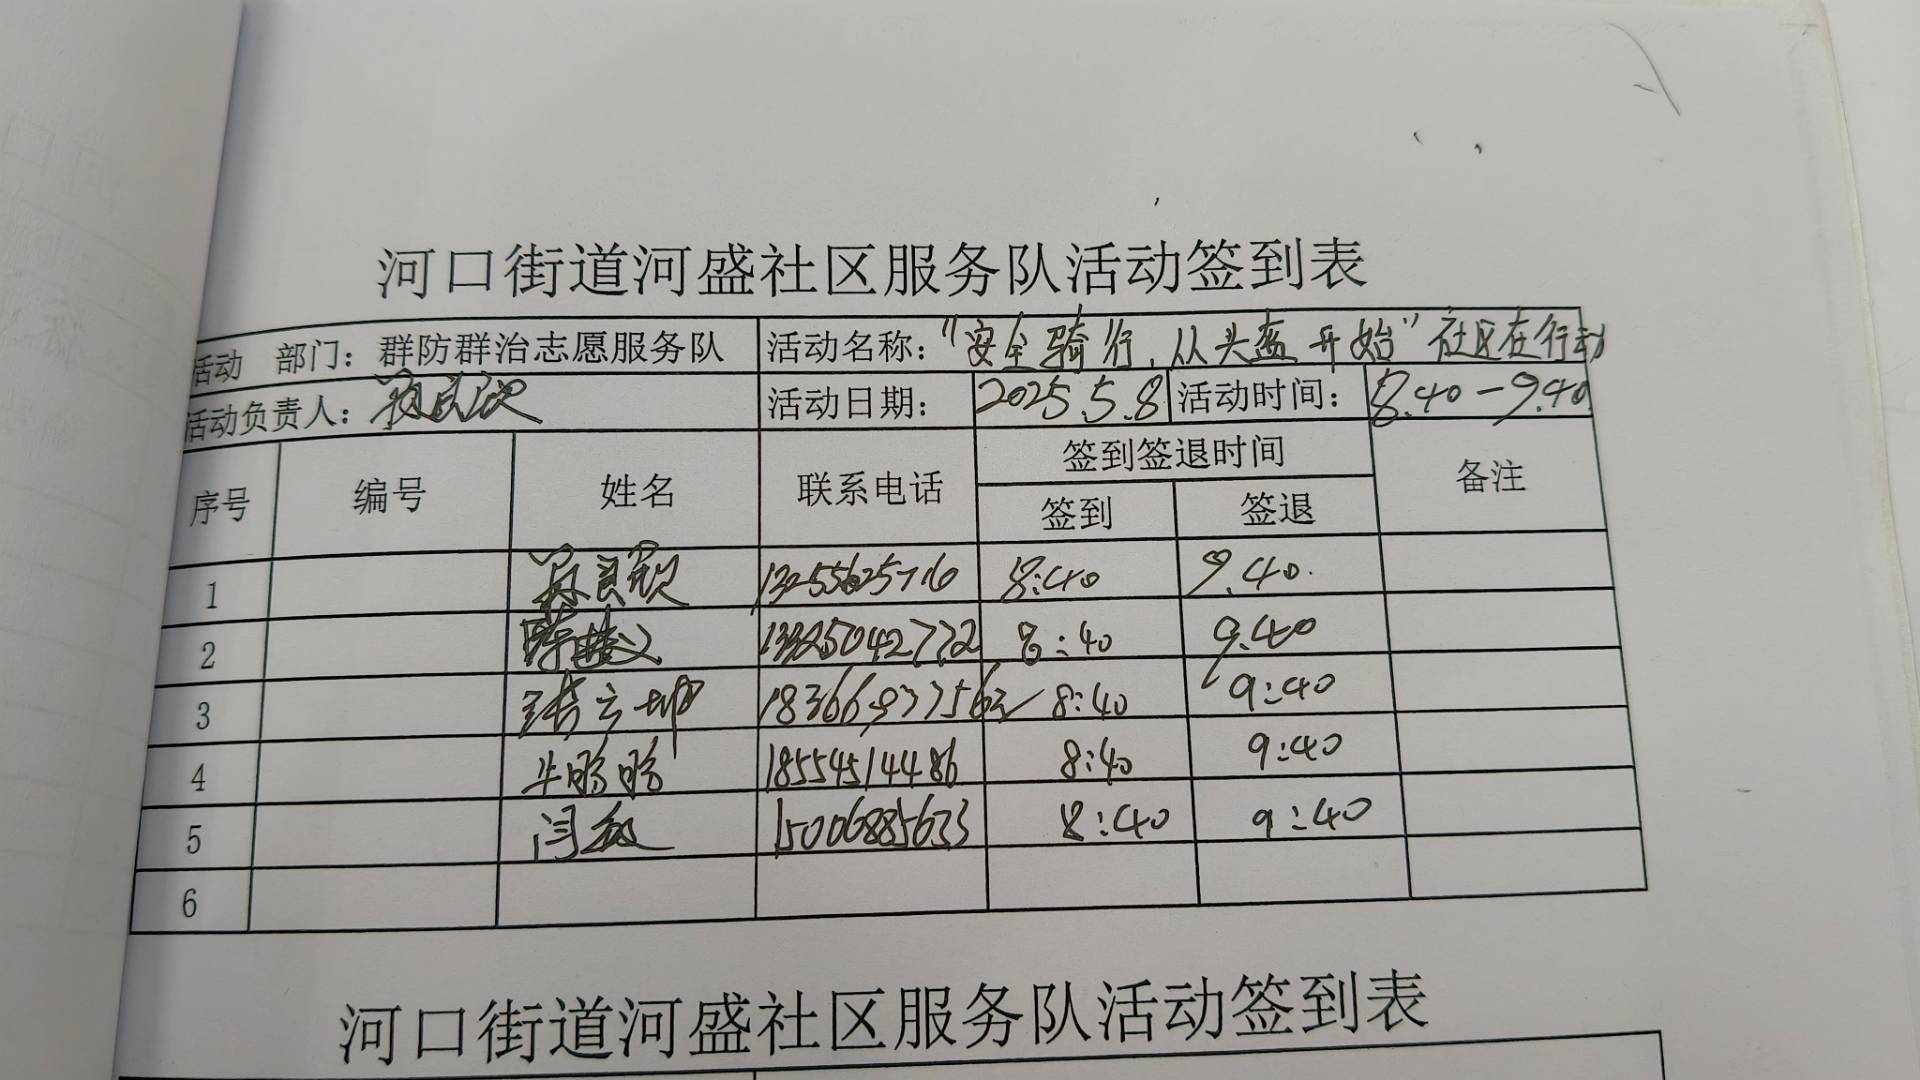 河口街道河盛社区服务队活动签到表
活动 部门：群防群治志愿服务队 活动名称："安全骑行，从头盔开始"社区在行动
活动负责人： 活动日期：2025.5.8 活动时间：8.40-9.40
序号 编号 姓名 联系电话 签到签退时间 备注
签到 签退
1 8:40 9.40
2 13325042772 8:40 9.40
3 张立坤 8:40 9:40
4 牛鹏鹏 18554514486 8:40 9:40
5 闫敏 15006885633 8:40 9:40
6
河口街道河盛社区服务队活动签到表